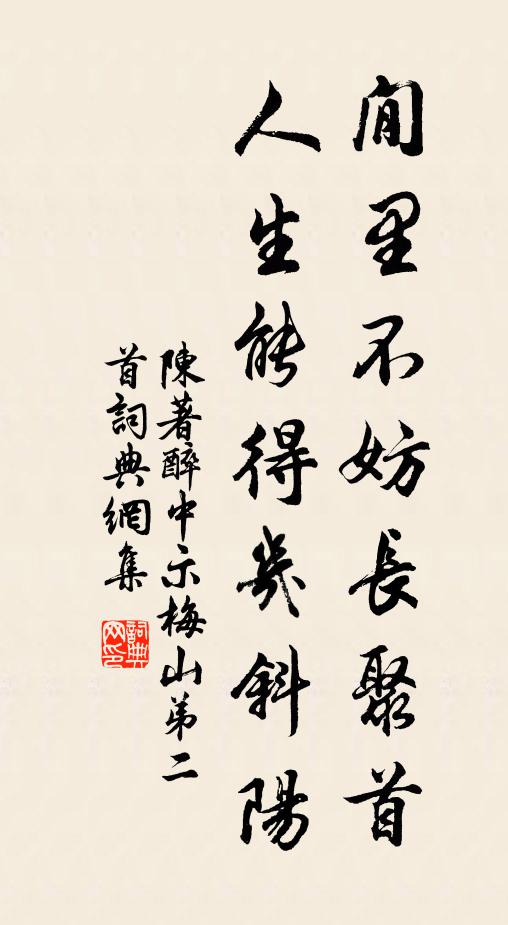 閒里不妨長聚首
人生能得幾斜陽
陳著醉中示梅山弟二
首詞典網集
詞典
网印